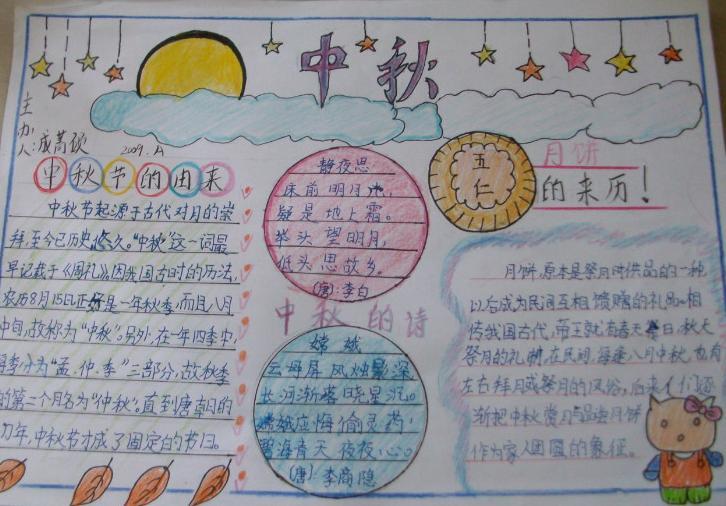 中秋
主办人:成蒿硕
2009.
中秋节的由来
中秋节起源于古代对月的崇
拜,至今已历史悠久。“中秋”这一词最
早记载于《周礼》,因我国古时的历法,
农历8月15日正好是一年秋季,而且八月
中旬,故称为“中秋”。另外,在一年四季中,
每季分为“孟、仲、季”三部分,故秋季
的第二个月名为“仲秋”。直到唐朝的
初年,中秋节才成了固定的节日。
静夜思:
床前明月光
疑是地上霜。
举头望明月,
低头思故乡。
(唐):李白
中秋的诗
嫦娥
云母屏风烛影深
长河渐落晓星沉。
嫦娥应悔偷灵药,
碧海青天夜夜心。
(唐):李商隐
五仁
月饼
的来历!
月饼,原本是祭月时供品的一种
以后成为民间互相馈赠的礼品。相
传我国古代,帝王就有春天祭日,秋天
祭月的礼制,在民间,每逢八月中秋,也有
左右拜月或祭月的风俗,后来人们逐
渐把中秋赏月与品尝月饼
作为家人团圆的象征。